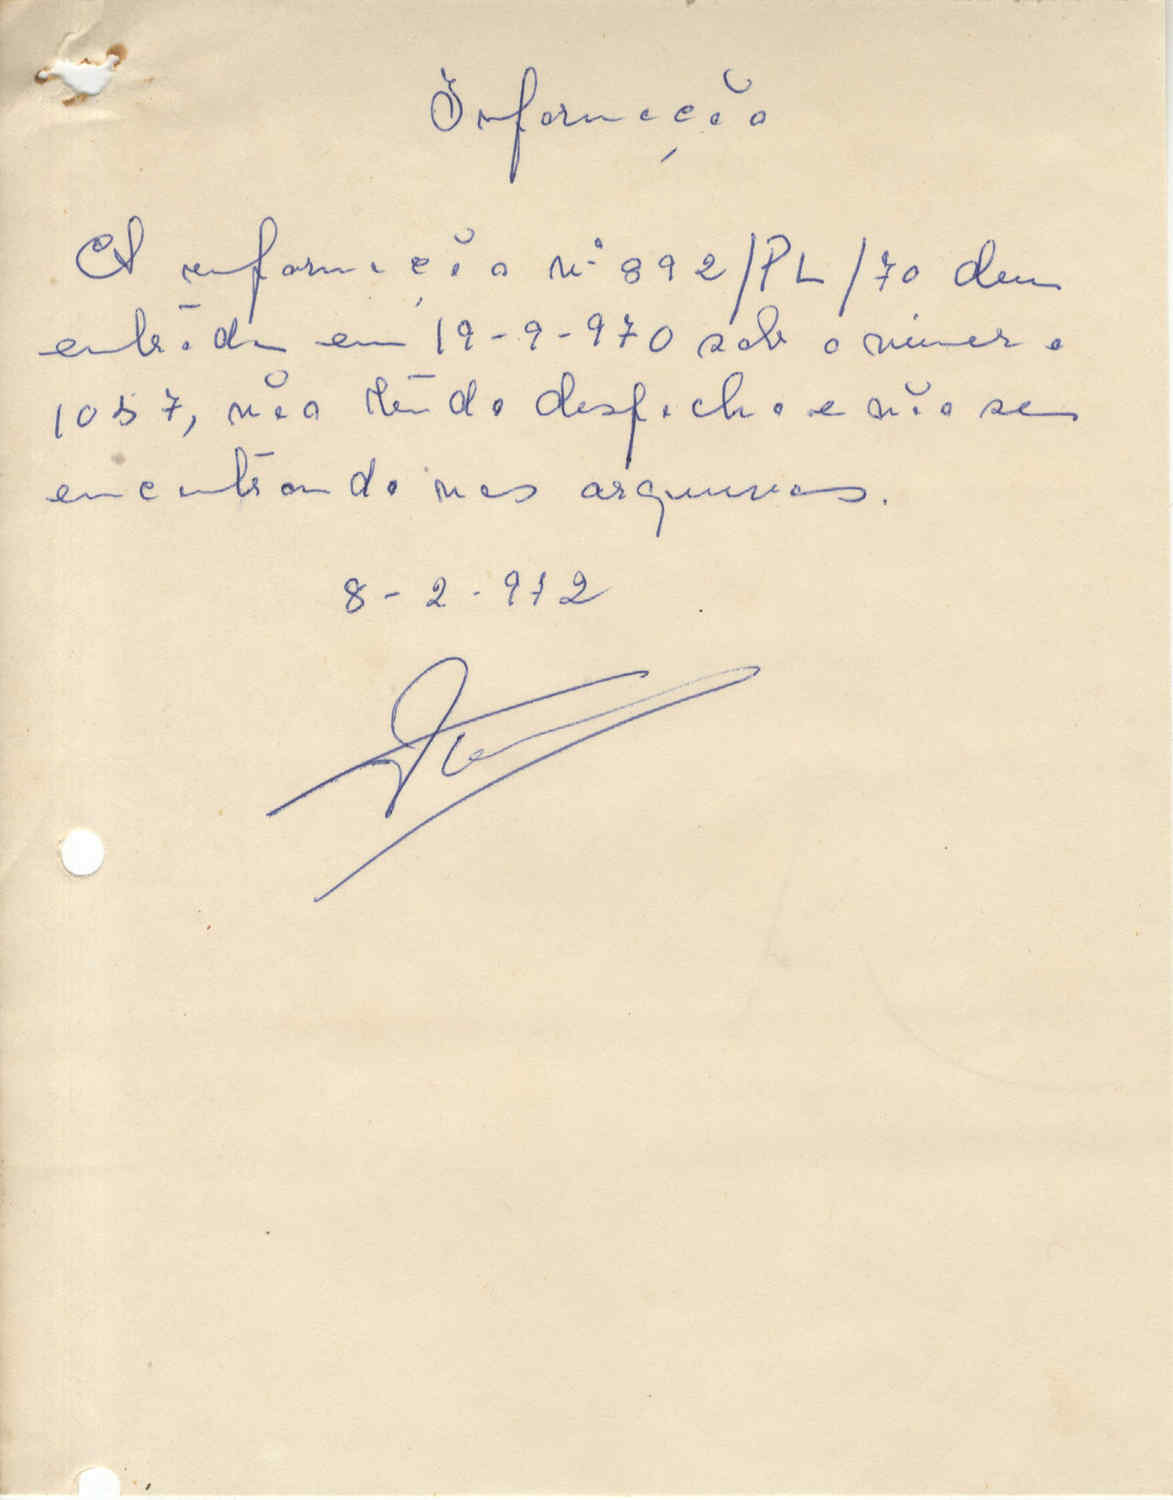 Informação
A informação nº 892/PL/70 deu
entrada em 19-9-970 sob o número
1057, não tendo despacho e não se
encontrando nos arquivos.
8-2-972